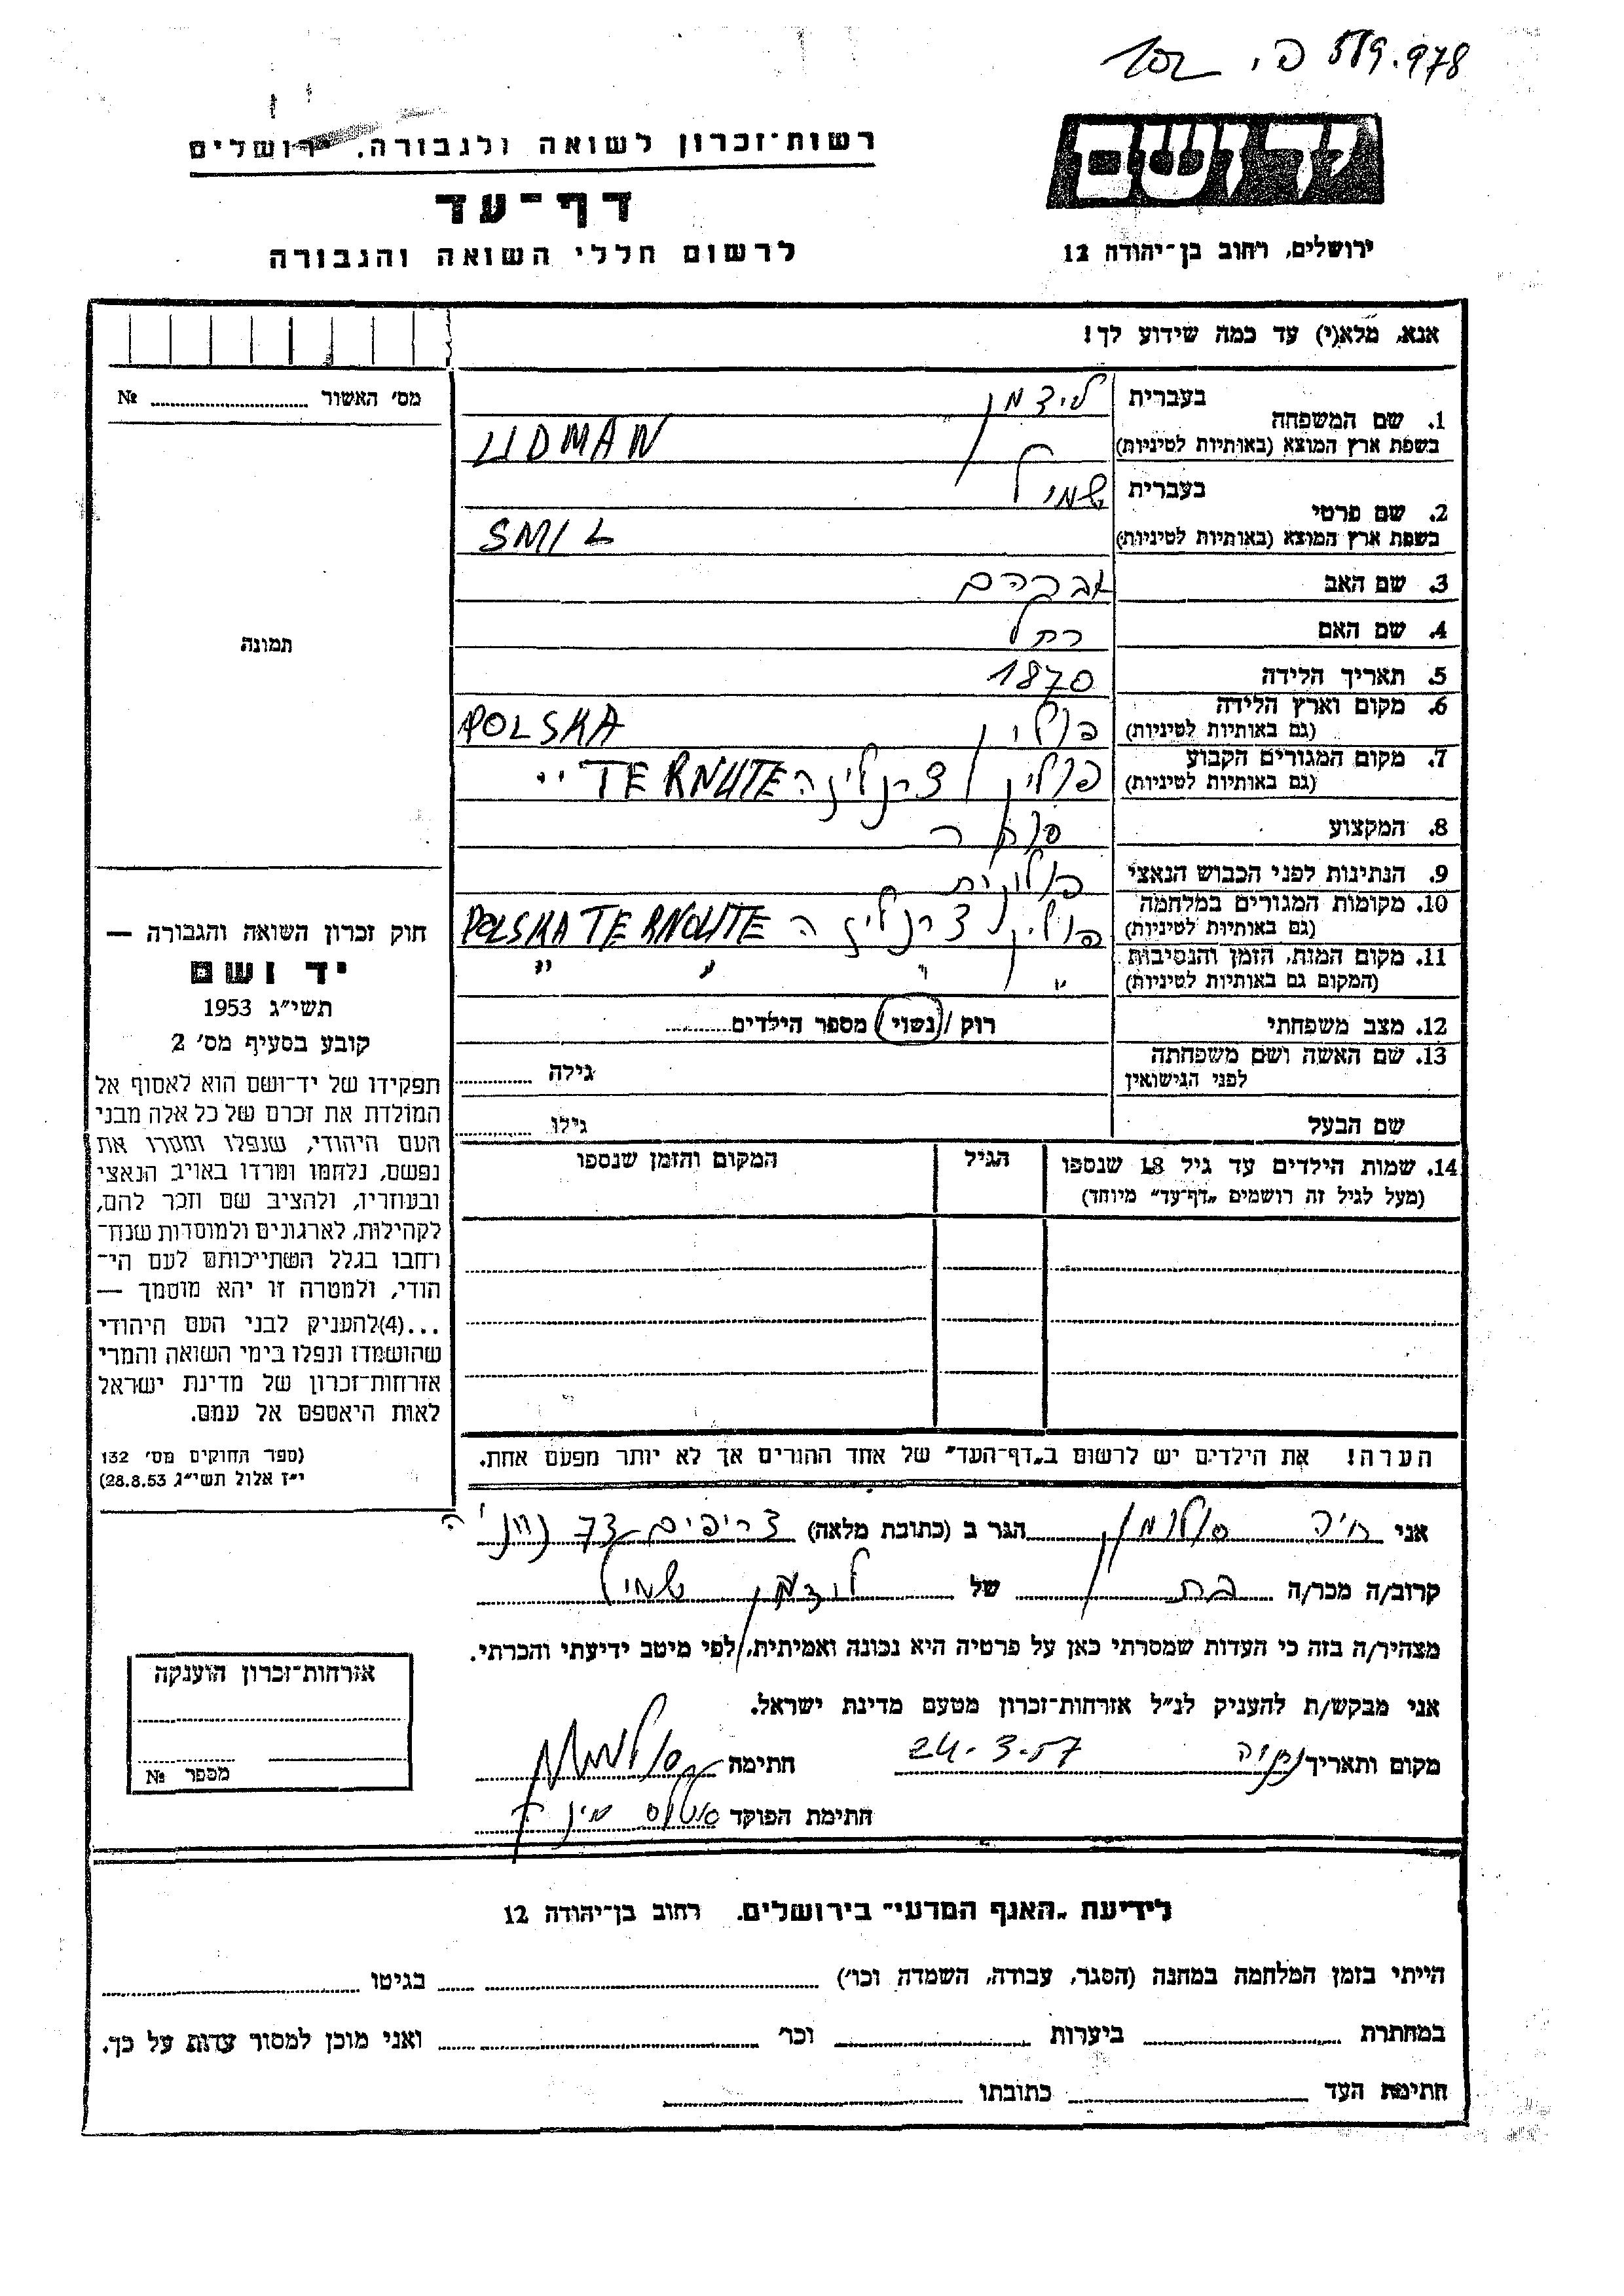 519.978 פ.
רשות־זכרון לשואה ולגבורה, ירושלים
ידושם
דף־עד
לרשום חללי השואה והגבורה
ירושלים, רחוב בן־יהודה 12
אנא, מלא(י) עד כמה שידוע לך!
מס' האשור № 
1. שם המשפחה
בעברית לידמן
בשפת ארץ המוצא (באותיות לטיניות) LIDMAN
2. שם פרטי
בעברית שמיל
בשפת ארץ המוצא (באותיות לטיניות) SMIL
3. שם האב אברהם
4. שם האם רחל
תמונה
5. תאריך הלידה 1870
6. מקום וארץ הלידה
(גם באותיות לטיניות) פולין POLSKA
7. מקום המגורים הקבוע
(גם באותיות לטיניות) פולין TERNUTE "
8. המקצוע סוחר
9. הנתינות לפני הכבוש הנאצי פולונית
10. מקומות המגורים במלחמה
(גם באותיות לטיניות) פולין POLSKA TERNOUTE
11. מקום המות, הזמן והנסיבות
(המקום גם באותיות לטיניות) " " " "
12. מצב משפחתי רווק / נשוי / מספר הילדים
13. שם האשה ושם משפחתה
לפני הנישואין גילה
שם הבעל גילו
14. שמות הילדים עד גיל 18 שנספו
(מעל לגיל זה רושמים „דף־עד" מיוחד)
הגיל
המקום והזמן שנספו
חוק זכרון השואה והגבורה —
יד ושם
תשי״ג 1953
קובע בסעיף מס' 2
תפקידו של יד־ושם הוא לאסוף אל
המולדת את זכרם של כל אלה מבני
העם היהודי, שנפלו ומסרו את
נפשם, נלחמו ומרדו באויב הנאצי
ובעוזריו, ולהציב שם וזכר להם,
לקהילות, לארגונים ולמוסדות שנח־
רחבו בגלל השתייכותם לעם הי־
הודי, ולמטרה זו יהא מוסמך —
...(4)להעניק לבני העם היהודי
שהושמדו ונפלו בימי השואה והמרי
אזרחות־זכרון של מדינת ישראל
לאות היאספם אל עמם.
(ספר החוקים מס' 132
י״ז אלול תשי״ג 28.8.53)
הערה! את הילדים יש לרשום ב„דף־העד" של אחד ההורים אך לא יותר מפעם אחת.
אני חיה סולומון הגר ב (כתובת מלאה) צריפים 73 נתניה
קרוב/ה מכר/ה בת של לידמן שמיל
מצהיר/ה בזה כי העדות שמסרתי כאן על פרטיה היא נכונה ואמיתית, לפי מיטב ידיעתי והכרתי.
אני מבקש/ת להעניק לנ״ל אזרחות־זכרון מטעם מדינת ישראל.
מקום ותאריך נתניה 24-3-57 חתימה
חתימת הפוקד
אזרחות־זכרון הוענקה
מספר №
לידיעת „האגף המדעי" בירושלים. רחוב בן־יהודה 12
הייתי בזמן המלחמה במחנה (הסגר, עבודה, השמדה וכו') בגיטו
במחתרת ביערות וכו' ואני מוכן למסור עדות על כך.
חתימת העד כתובתו